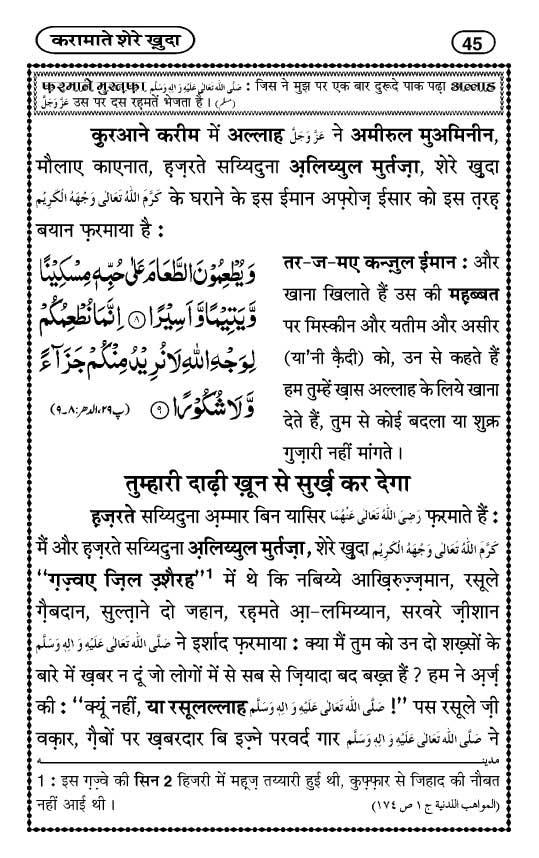 करामाते शेरे ख़ुदा
45
फ़रमाने मुस्त़फ़ा صَلَّى اللهُ تَعَالٰى عَلَيْهِ وَاٰلِهٖ وَسَلَّم : जिस ने मुझ पर एक बार दुरूदे पाक पढ़ा अल्लाह
عَزَّوَجَلَّ उस पर दस रहमतें भेजता है । (مسلم)
क़ुरआने करीम में अल्लाह عَزَّوَجَلَّ ने अमीरुल मुअमिनीन,
मौलाए काएनात, ह़ज़रते सय्यिदुना अ़लिय्युल मुर्तज़ा, शेरे ख़ुदा
كَرَّمَ اللهُ تَعَالٰى وَجْهَهُ الْكَرِيْم के घराने के इस ईमान अफ़्रोज़ ईसार को इस त़रह़
बयान फ़रमाया है :
وَيُطْعِمُوْنَ الطَّعَامَ عَلٰى حُبِّهٖ مِسْكِيْنًا
وَّيَتِيْمًا وَّاَسِيْرًا ۝۸ اِنَّمَا نُطْعِمُكُمْ
لِوَجْهِ اللّٰهِ لَا نُرِيْدُ مِنْكُمْ جَزَآءً
وَّلَا شُكُوْرًا ۝۹ (پ۲۹، الدھر: ۸-۹)
तर-ज-मए कन्ज़ुल ईमान : और
खाना खिलाते हैं उस की मह़ब्बत
पर मिस्कीन और यतीम और असीर
(या'नी क़ैदी) को, उन से कहते हैं
हम तुम्हें ख़ास अल्लाह के लिये खाना
देते हैं, तुम से कोई बदला या शुक्र
गुज़ारी नहीं मांगते ।
तुम्हारी दाढ़ी ख़ून से सुर्ख़ कर देगा
ह़ज़रते सय्यिदुना अ़म्मार बिन यासिर رَضِىَ اللهُ تَعَالٰى عَنْهُمَا फ़रमाते हैं :
मैं और ह़ज़रते सय्यिदुना अ़लिय्युल मुर्तज़ा, शेरे ख़ुदा كَرَّمَ اللهُ تَعَالٰى وَجْهَهُ الْكَرِيْم
‘‘ग़ज़्वए ज़िल उ़शैरह’’1 में थे कि नबिय्ये आख़िरुज़्ज़मान, रसूले
ग़ैबदान, सुल्त़ाने दो जहान, रह़मते आ़-लमिय्यान, सरवरे ज़ीशान
صَلَّى اللهُ تَعَالٰى عَلَيْهِ وَاٰلِهٖ وَسَلَّم ने इर्शाद फ़रमाया : क्या मैं तुम को उन दो शख़्सों के
बारे में ख़बर न दूं जो लोगों में से सब से ज़ियादा बद बख़्त हैं ? हम ने अ़र्ज़
की : ‘‘क्यूं नहीं, या रसूलल्लाह صَلَّى اللهُ تَعَالٰى عَلَيْهِ وَاٰلِهٖ وَسَلَّم !’’ पस रसूले ज़ी
वक़ार, ग़ैबों पर ख़बरदार बि इज़्ने परवर्द गार صَلَّى اللهُ تَعَالٰى عَلَيْهِ وَاٰلِهٖ وَسَلَّم ने
مدینہ
1 : इस ग़ज़्वे की सिन 2 हिजरी में मह़ज़ तय्यारी हुई थी, कुफ़्फ़ार से जिहाद की नौबत
नहीं आई थी । (المواهب اللدنية ج ١ ص ١٧٤)